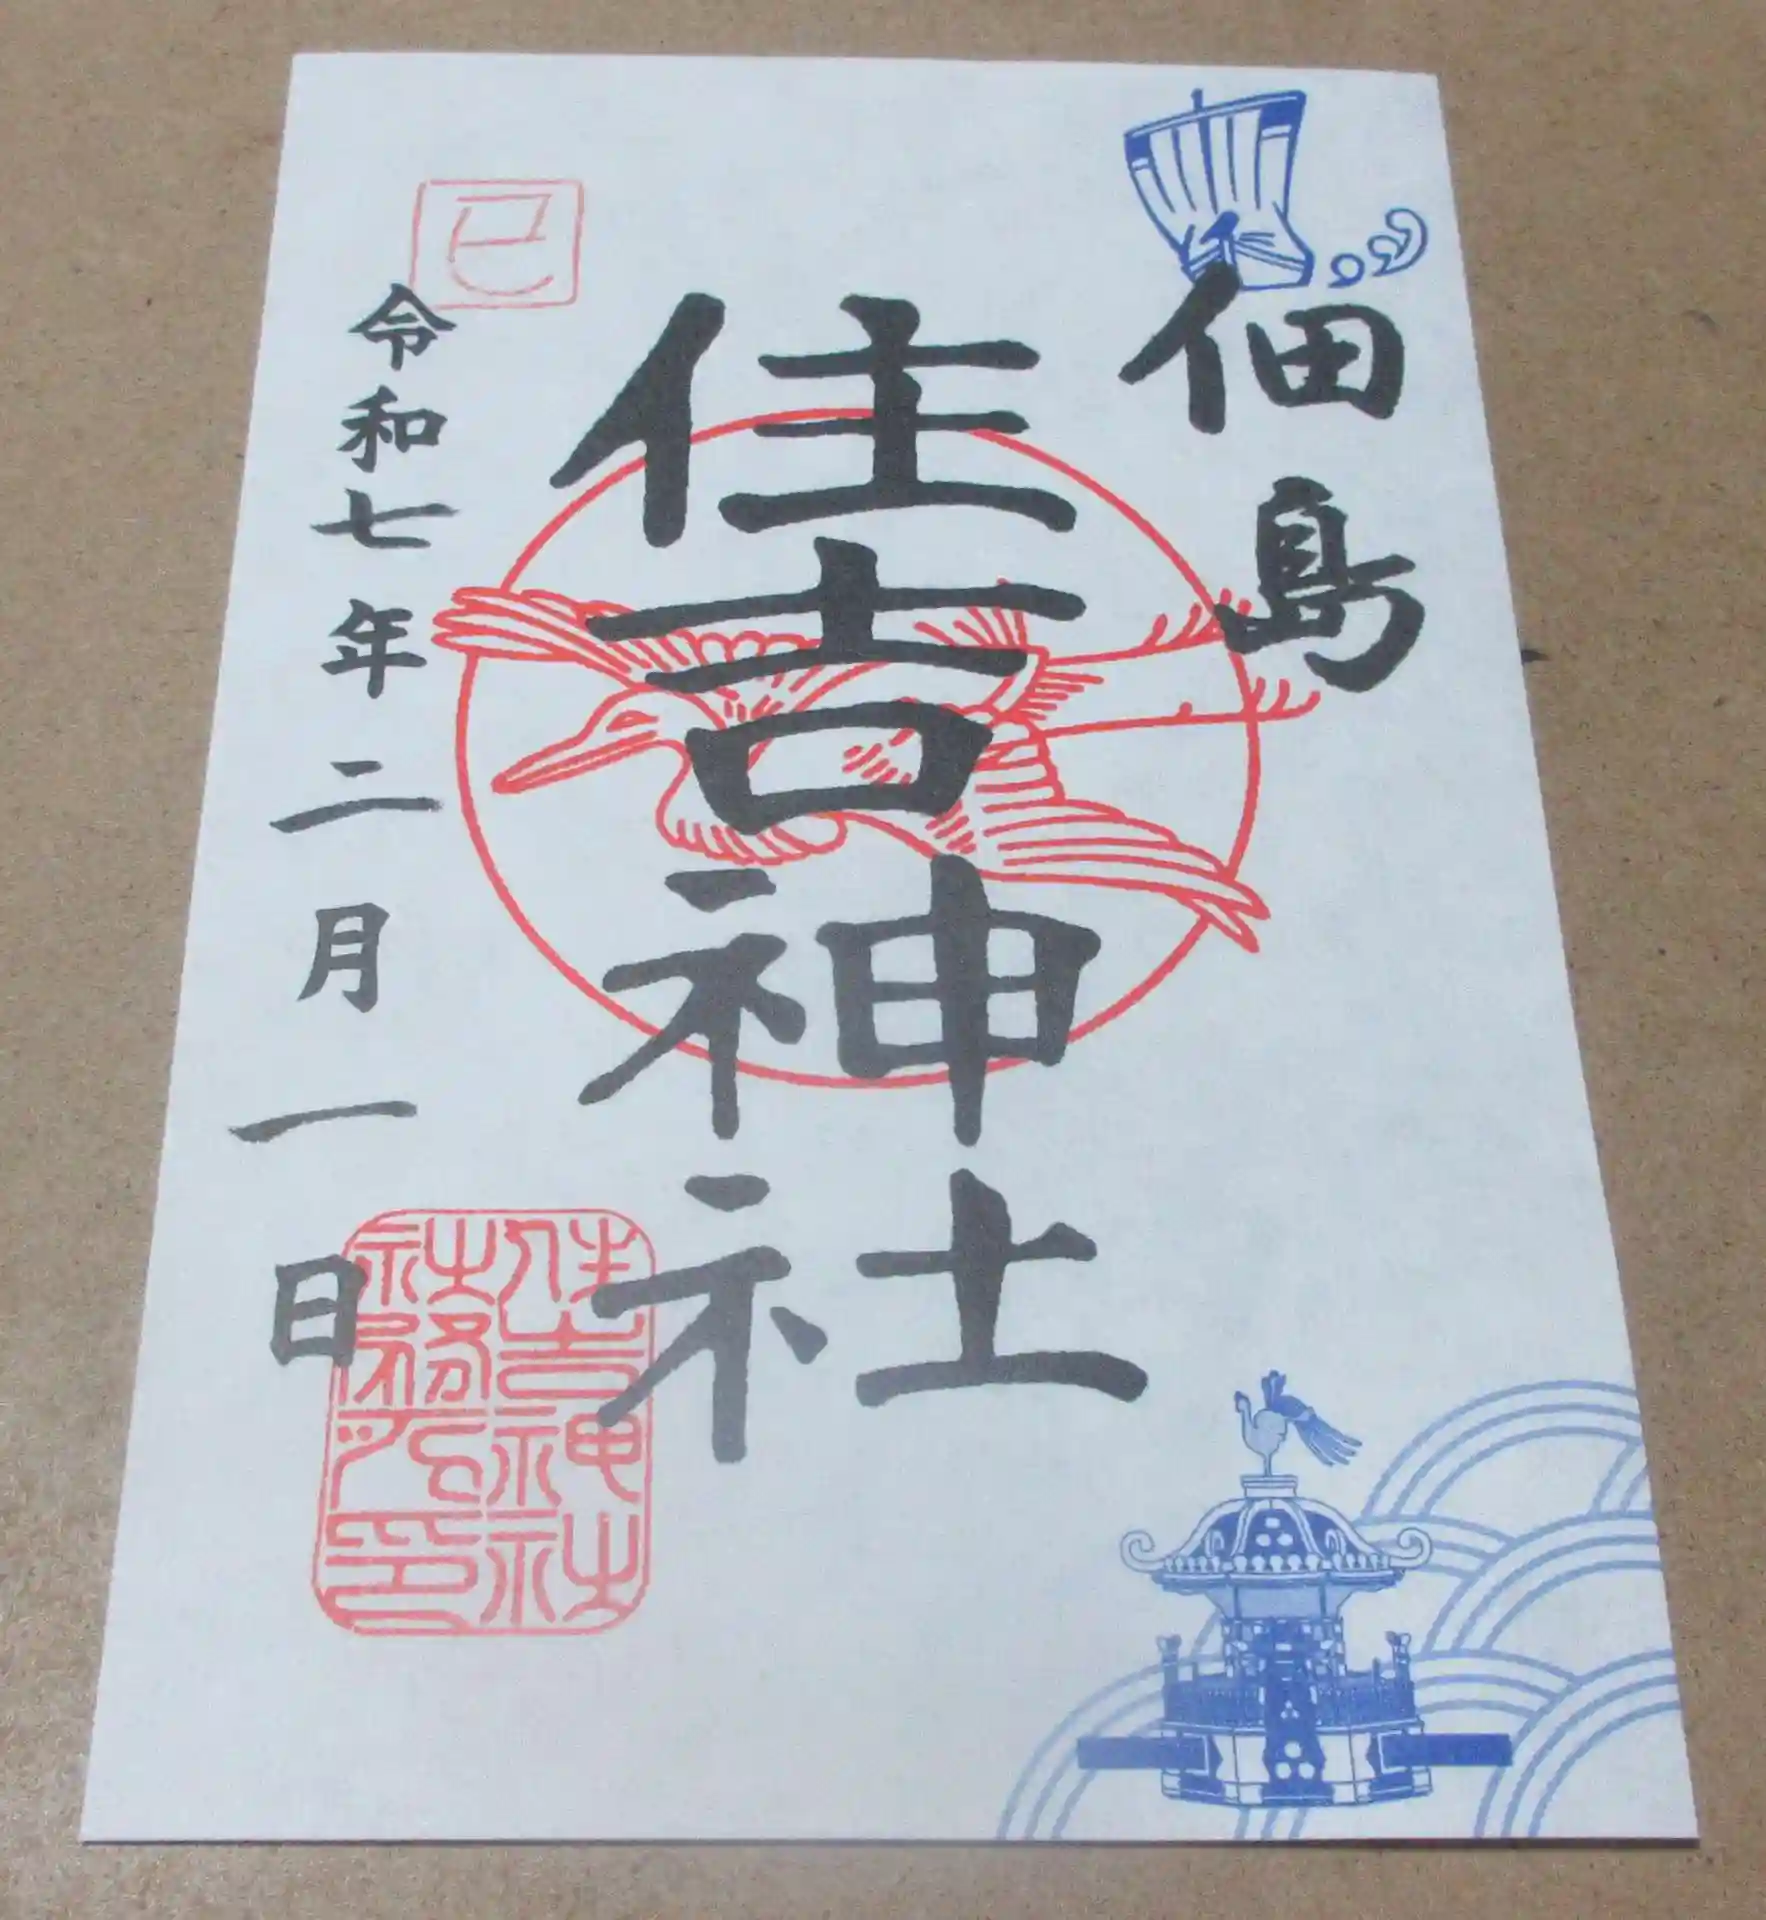 佃島
住吉神社
巳
令和七年二月一日
住吉神社
社務所印